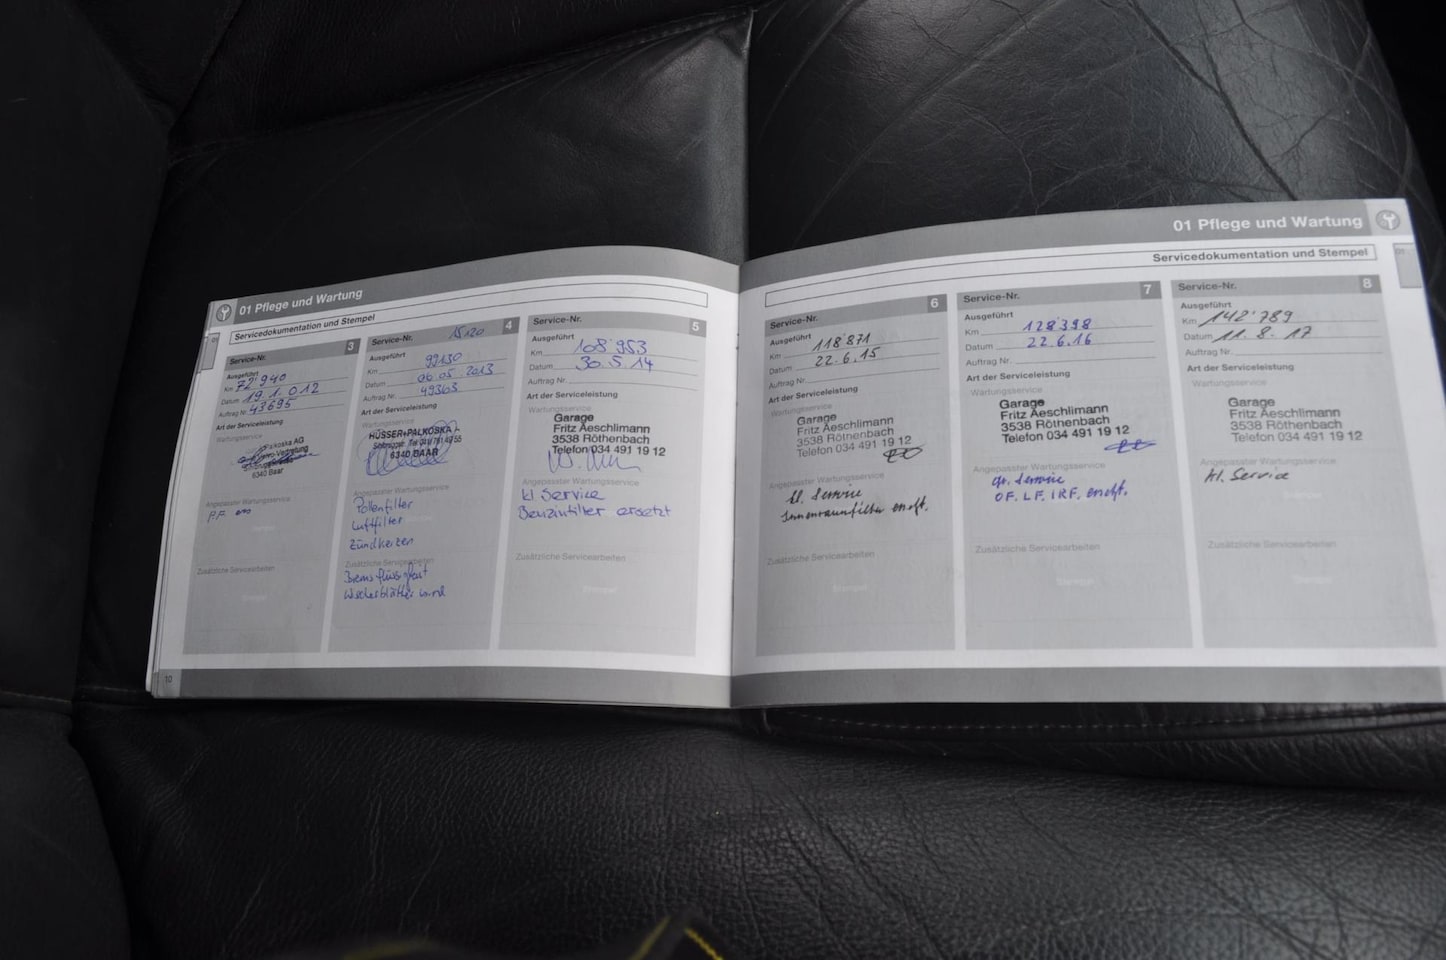 01 Pflege und Wartung
Servicedokumentation und Stempel
Service-Nr. 3
Ausgeführt
Km 72'940
Datum 19.1.012
Auftrag Nr. 43695
Art der Serviceleistung
Wartungsservice
Palkoska AG
6340 Baar
Angepasster Wartungsservice
P.F.
Zusätzliche Servicearbeiten
Stempel
10
Service-Nr. 15120 4
Ausgeführt
Km 99130
Datum 06 05 2013
Auftrag Nr. 49303
Art der Serviceleistung
Wartungsservice
HÜSSER+PALKOSKA
6340 BAAR
Angepasster Wartungsservice
Pollenfilter
Luftfilter
Zündkerzen
Zusätzliche Servicearbeiten
Bremsflüssigkeit
Wischerblätter
Service-Nr. 5
Ausgeführt
Km 108'953
Datum 30.5.14
Auftrag Nr.
Art der Serviceleistung
Wartungsservice
Garage
Fritz Aeschlimann
3538 Röthenbach
Telefon 034 491 19 12
Angepasster Wartungsservice
kl Service
Benzinfilter ersetzt
Zusätzliche Servicearbeiten
Stempel
01 Pflege und Wartung
Servicedokumentation und Stempel
Service-Nr. 6
Ausgeführt
Km 118'871
Datum 22.6.15
Auftrag Nr.
Art der Serviceleistung
Wartungsservice
Garage
Fritz Aeschlimann
3538 Röthenbach
Telefon 034 491 19 12
Angepasster Wartungsservice
kl. Service
Innenraumfilter
Zusätzliche Servicearbeiten
Stempel
Service-Nr. 7
Ausgeführt
Km 128'398
Datum 22.6.16
Auftrag Nr.
Art der Serviceleistung
Wartungsservice
Garage
Fritz Aeschlimann
3538 Röthenbach
Telefon 034 491 19 12
Angepasster Wartungsservice
gr. Service
OF. LF. IRF.
Zusätzliche Servicearbeiten
Stempel
Service-Nr. 8
Ausgeführt
Km 142'789
Datum 11.8.17
Auftrag Nr.
Art der Serviceleistung
Wartungsservice
Garage
Fritz Aeschlimann
3538 Röthenbach
Telefon 034 491 19 12
Angepasster Wartungsservice
kl. Service
Stempel
Zusätzliche Servicearbeiten
Stempel